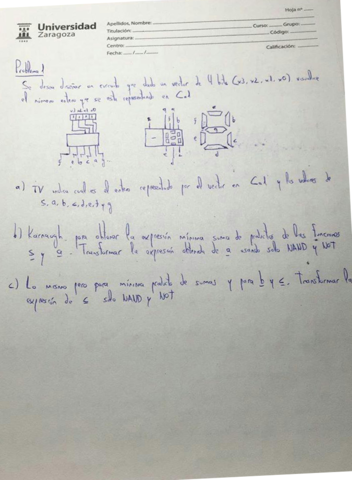 Hoja nº
Universidad
Zaragoza
Apellidos, Nombre:
Titulación: Curso: Grupo:
Asignatura Código:
Centro:
Fecha: Calificación:
Problema 1
Se desea diseñar un circuito que dado un vector de 4 bits (x3, x2, x1, x0) muestre
el número entero que se está representando en Ca1
a) TV indica cual es el entero representado por el vector en Ca1 y los valores de
s, a, b, c, d, e, f y g
b) Karnaugh para obtener la expresión mínima suma de productos de las funciones
s y a. Transformar la expresión obtenida de a usando sólo NAND y NOT
c) Lo mismo pero para mínimo producto de sumas y para b y c. Transformar la
expresión de c sólo NAND y NOT